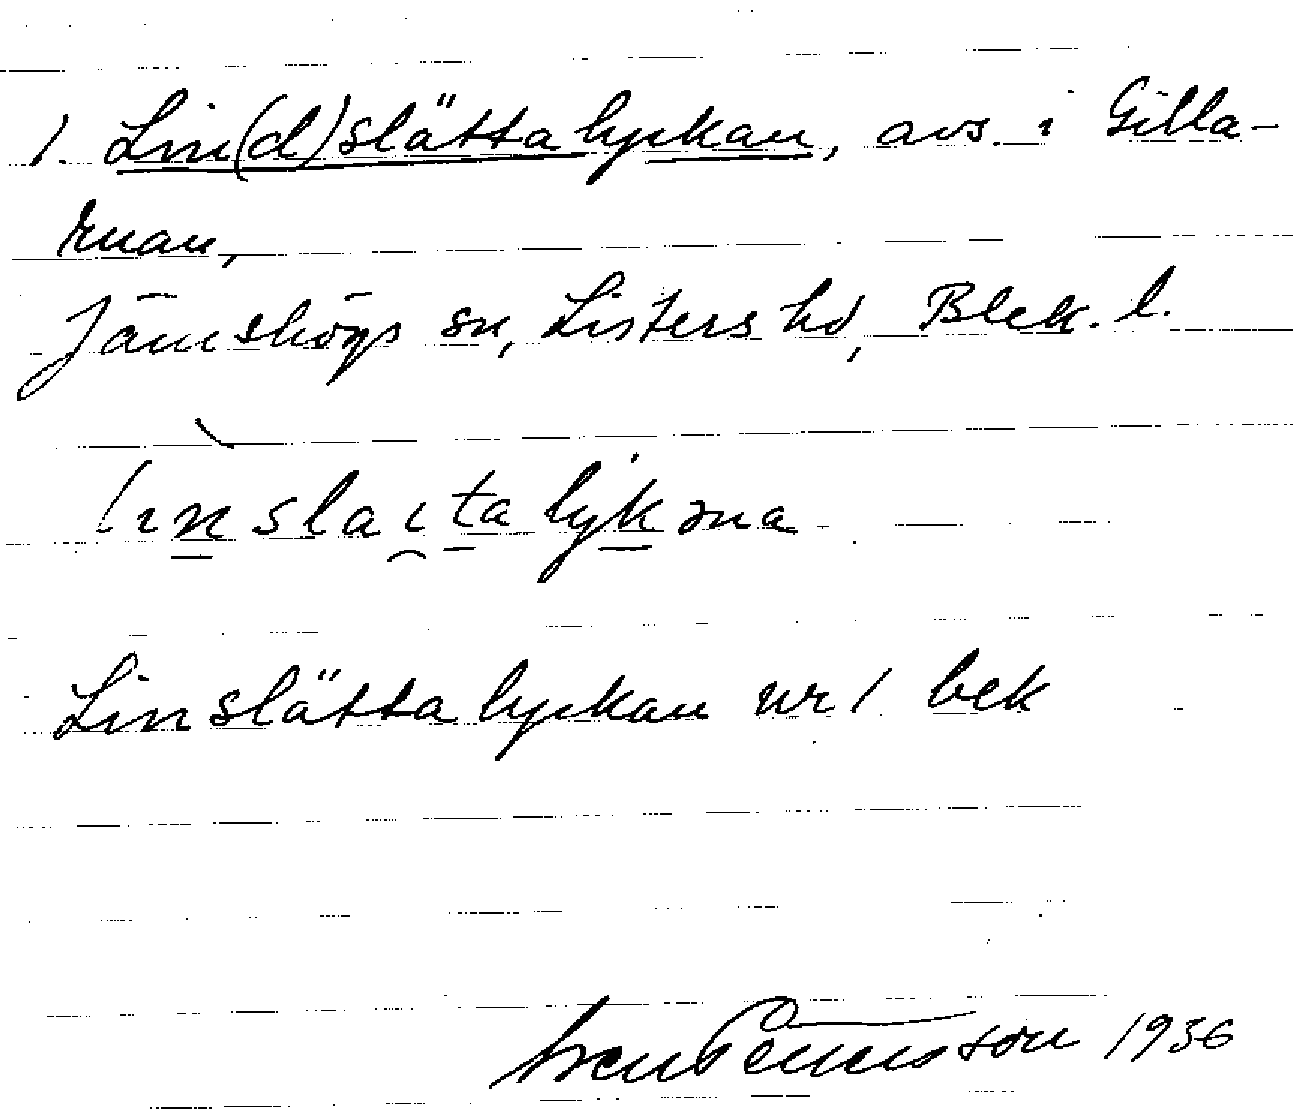 1. Lin(d)slättalyckan, avs. i Gilla-
ruan,
Jämshögs sn, Listers hd, Blek. l.
lınslai̯talykəna
Linslättalyckan nr 1 bek
Sven Benson 1936